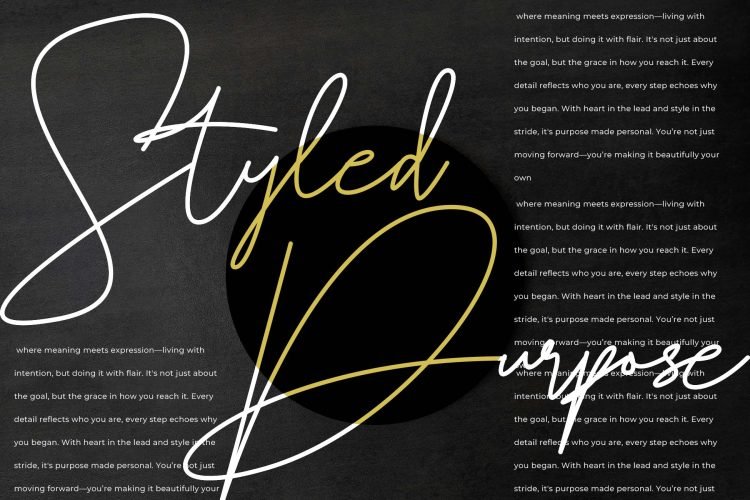 Styled
Purpose
where meaning meets expression—living with
intention, but doing it with flair. It's not just about
the goal, but the grace in how you reach it. Every
detail reflects who you are, every step echoes why
you began. With heart in the lead and style in the
stride, it's purpose made personal. You're not just
moving forward—you're making it beautifully your
own
where meaning meets expression—living with
intention, but doing it with flair. It's not just about
the goal, but the grace in how you reach it. Every
detail reflects who you are, every step echoes why
you began. With heart in the lead and style in the
stride, it's purpose made personal. You're not just
moving forward—you're making it beautifully your
where meaning meets expression—living with
intention, but doing it with flair. It's not just about
the goal, but the grace in how you reach it. Every
detail reflects who you are, every step echoes why
you began. With heart in the lead and style in the
stride, it's purpose made personal. You're not just
where meaning meets expression—living with
intention, but doing it with flair. It's not just about
the goal, but the grace in how you reach it. Every
detail reflects who you are, every step echoes why
you began. With heart in the lead and style in the
stride, it's purpose made personal. You're not just
moving forward—you're making it beautifully your